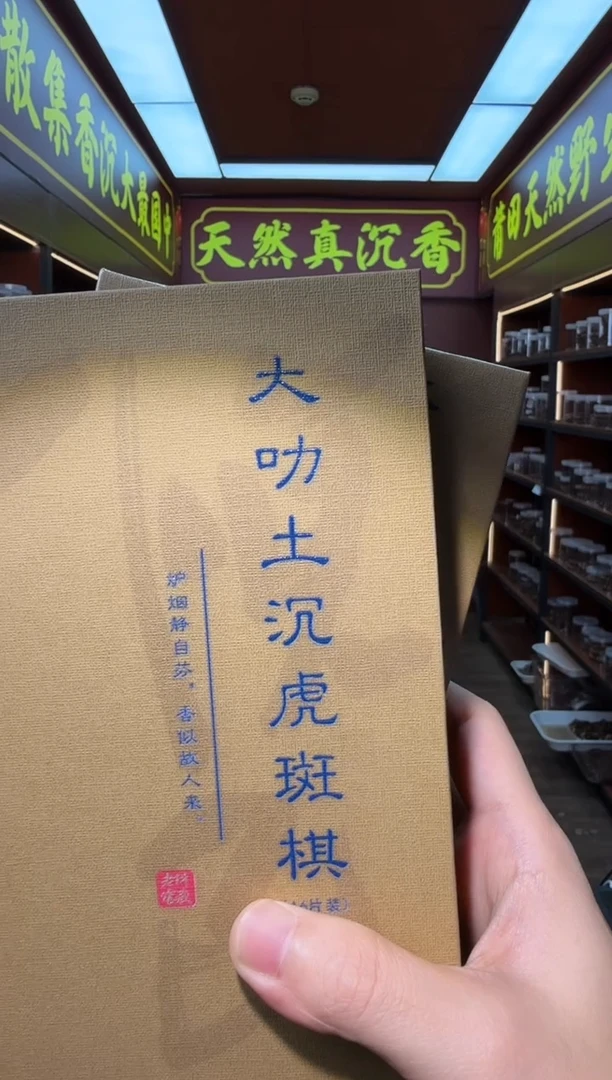 中国最大沉香集散
天然真沉香
莆田天然野
大叻土沉虎斑棋
片装）
炉烟静自芬，香似故人来。